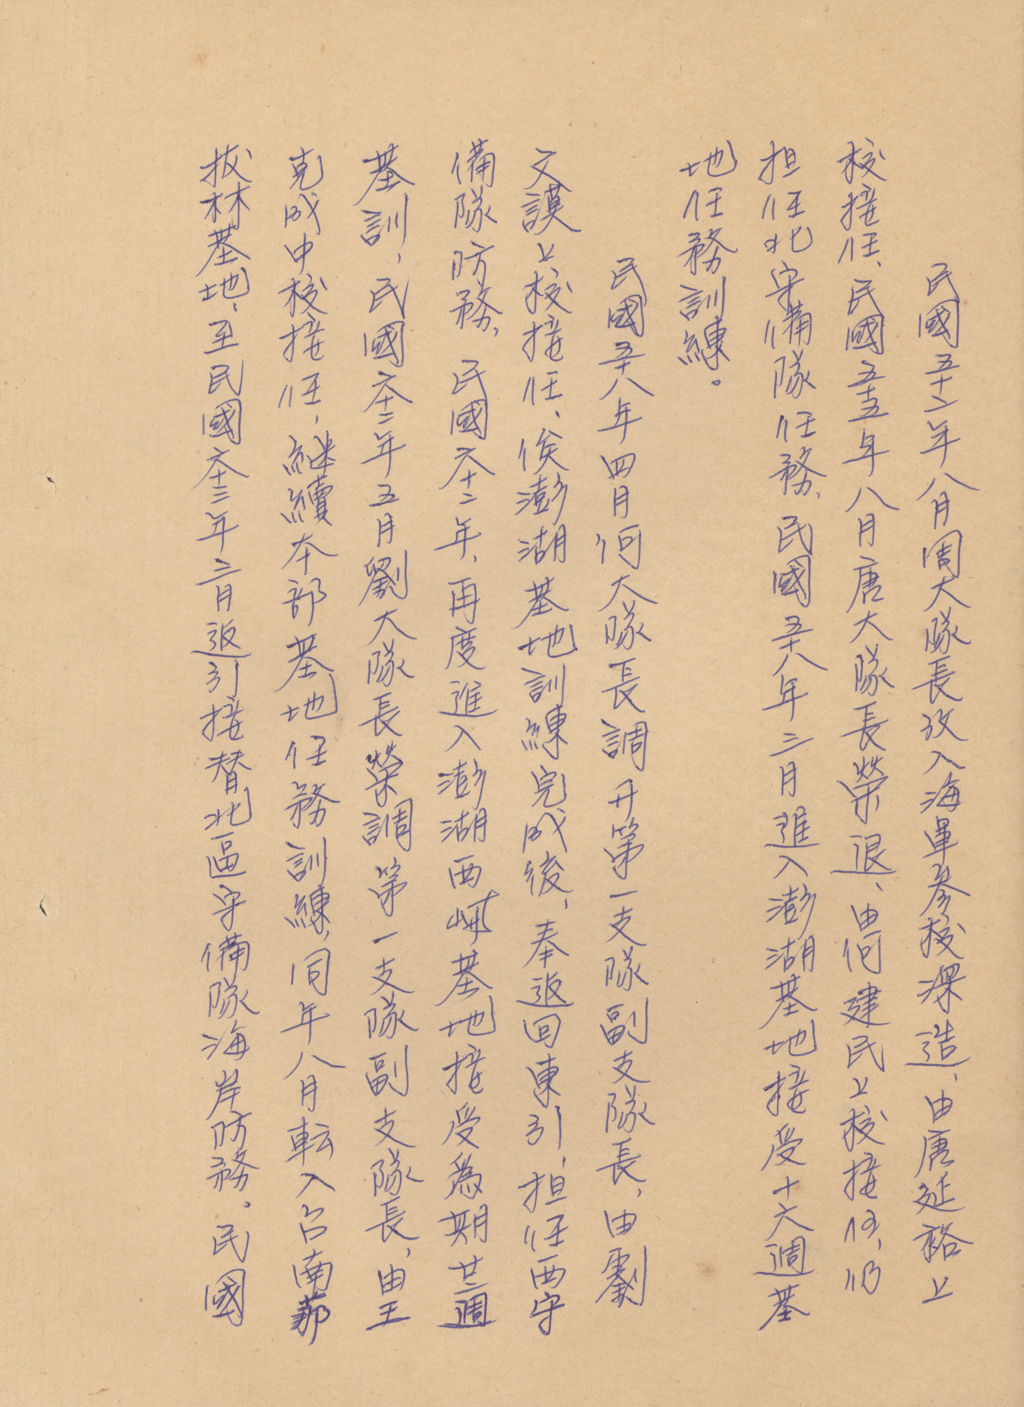 民國五十二年八月周大隊長改入海軍參校深造，由唐延裕上
校接任、民國五十五年八月唐大隊長榮退、由何建民上校接任，仍
担任北守備隊任務、民國五十八年三月進入澎湖基地接受十六週基
地任務訓練。
民國五十八年四月何大隊長調升第一支隊副支隊長，由劉
文謨上校接任、俟澎湖基地訓練完成後，奉返回東引，担任西守
備隊防務，民國六十二年，再度進入澎湖西嶼基地接受為期廿二週
基訓，民國六十二年五月劉大隊長榮調第一支隊副支隊長，由王
克成中校接任，継續本部基地任務訓練，同年八月転入台南
拔林基地，至民國六十三年二月返引接替北區守備隊海岸防務。民國